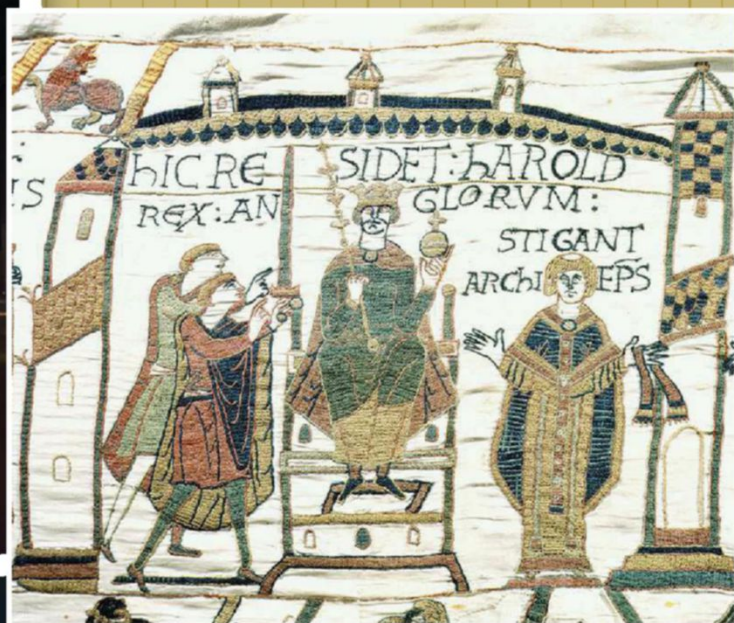 hIC RE SIDET : hAROLD
IS
REX : AN GLORVM :
STIGANT
ARChI EP̄S